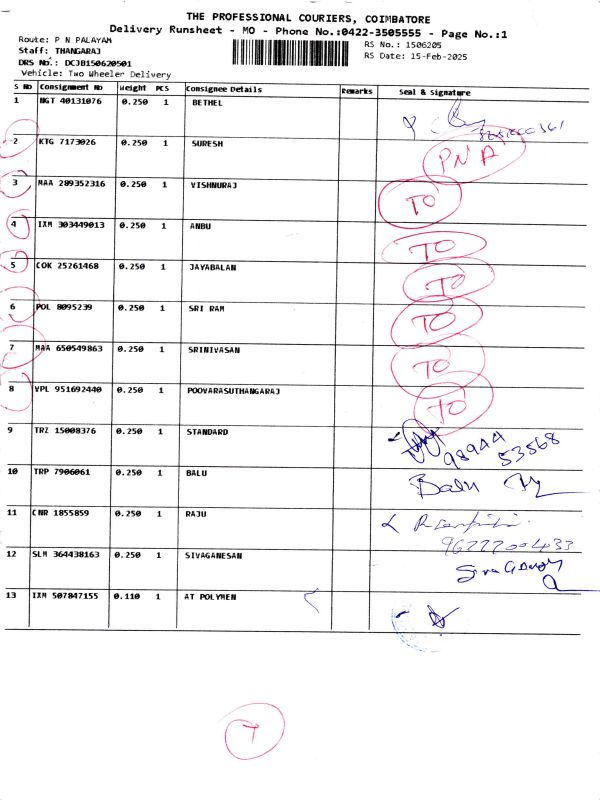 THE PROFESSIONAL COURIERS, COIMBATORE
Delivery Runsheet - MO - Phone No.:0422-3505555 - Page No.:1
Route: P N PALAYAM
RS No.: 1506205
Staff: THANGARAJ
RS Date: 15-Feb-2025
DRS No.: DCJB150620501
Vehicle: Two Wheeler Delivery
S No Consignment No Weight PCS Consignee Details Remarks Seal & Signature
1 NGT 40131076 0.250 1 BETHEL
2 KTG 7173026 0.250 1 SURESH PNA
3 MAA 289352316 0.250 1 VISHNURAJ TO
4 IXM 303449013 0.250 1 ANBU TO
5 COK 25261468 0.250 1 JAYABALAN TO
6 POL 8095239 0.250 1 SRI RAM TO
7 MAA 650549863 0.250 1 SRINIVASAN TO
8 VPL 951692440 0.250 1 POOVARASUTHANGARAJ TO
9 TRZ 15008376 0.250 1 STANDARD 98944 53568
10 TRP 7906061 0.250 1 BALU Balu
11 CNR 1855859 0.250 1 RAJU
12 SLM 364438163 0.250 1 SIVAGANESAN
13 IXM 507847155 0.110 1 AT POLYMEN
7